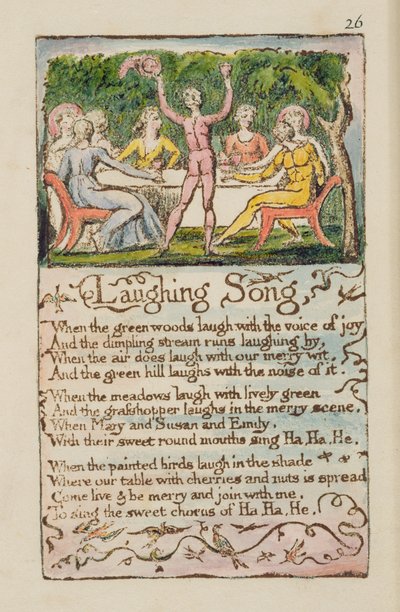 26
Laughing Song,
When the green woods laugh with the voice of joy
And the dimpling stream runs laughing by,
When the air does laugh with our merry wit,
And the green hill laughs with the noise of it.
When the meadows laugh with lively green
And the grashopper laughs in the merry scene,
When Mary and Susan and Emily,
With their sweet round mouths sing Ha, Ha, He.
When the painted birds laugh in the shade
Where our table with cherries and nuts is spread
Come live & be merry and join with me,
To sing the sweet chorus of Ha, Ha, He.